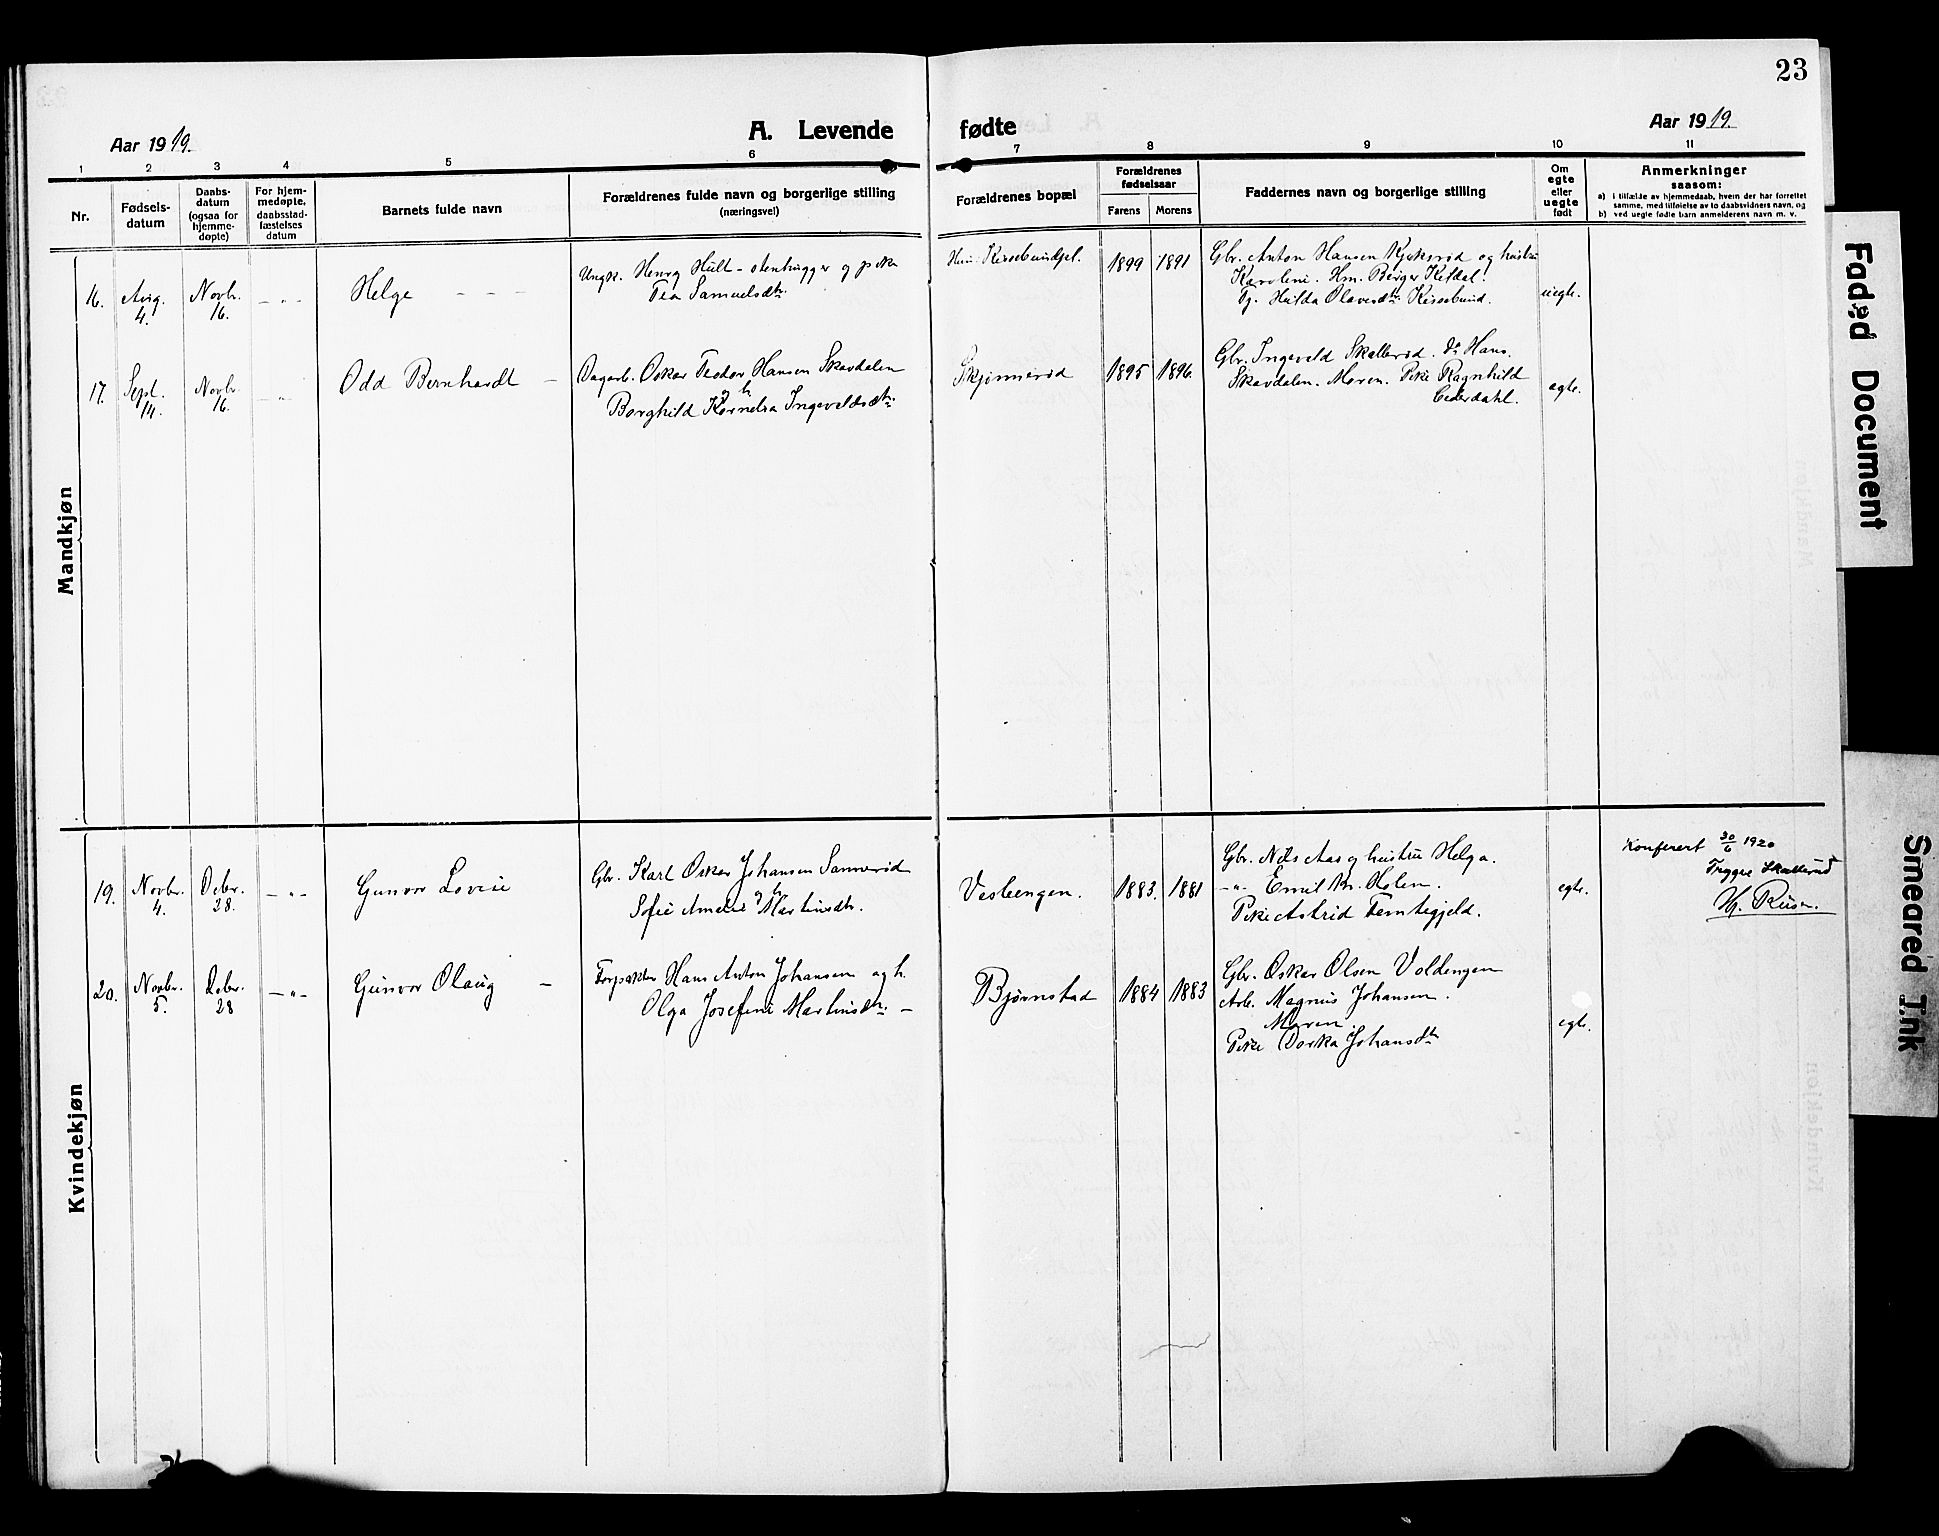 23
Aar 1919.
A. Levende fødte
Aar 1919.
1 2 3 4 5 6 7 8 9 10 11
Nr.
Fødsels-
datum
Daabs-
datum
(ogsaa for
hjemme-
døpte)
For hjem-
medøpte,
daabsstad-
fæstelses
datum
Barnets fulde navn
Forældrenes fulde navn og borgerlige stilling
(næringsvei)
Forældrenes bopæl
Forældrenes
fødselsaar
Farens Morens
Faddernes navn og borgerlige stilling
Om
egte
eller
uegte
født
Anmerkninger
saasom:
a) i tilfælde av hjemmedaab, hvem der har forrettet
samme, med tilføielse av to daabsvidners navn, og
b) ved uegte fødte barn anmelderens navn m. v.
Mandkjøn
16.
Aug.
4.
Novbr.
16.
— „ —
Helge — — —
Ungk. Henry Hult - stenhugger og pike
Tea Samuelsdtr.
Kirsebundfjel.
1899 1891
Gbr. Anton Hansen Kjøksrød og hustru
Karoline. Hm. Birger Kildal.
Tj. Hilda Olavesdtr. Kirsebund.
uegte.
17.
Sept.
14.
Novbr.
16.
„
Odd Bernhardt —
Dagarb. Oskar Teodor Hansen Skavdalen
og h.
Borghild Kornelia Ingeveldsdtr.
Skjønnerød
1895 1896.
Gbr. Ingeveld Skallerød. do Hans.
Skavdalen. Maren. Pike Ragnhild
Cederdahl.
egte.
Kvindekjøn
19.
Novbr.
4.
Debr.
28.
— „ —
Gunvor Lovise
Gbr. Karl Oskar Johansen Sannerød
og h.
Sofie Amalie Martinsdtr.
Vestengen.
1883. 1881
Gbr. Nils Aas og hustru Helga.
— „ — Emil Kr. Holen.
Pike Astrid Femtegjeld.
egte.
Konferert 30/6 1920
Trygve Skallerud
Hj. Riise.
20.
Novbr.
5.
Debr.
28
— „ —
Gunvor Olaug —
Forpakter Hans Anton Johansen og h.
Olga Josefine Martinsdtr. —
Bjørnstad
1884 1883
Gbr. Oskar Olsen Voldengen
Arb. Magnus Johansen.
Maren
Pike Dorka Johansdtr
egte.
Faded Document
Smeared Ink